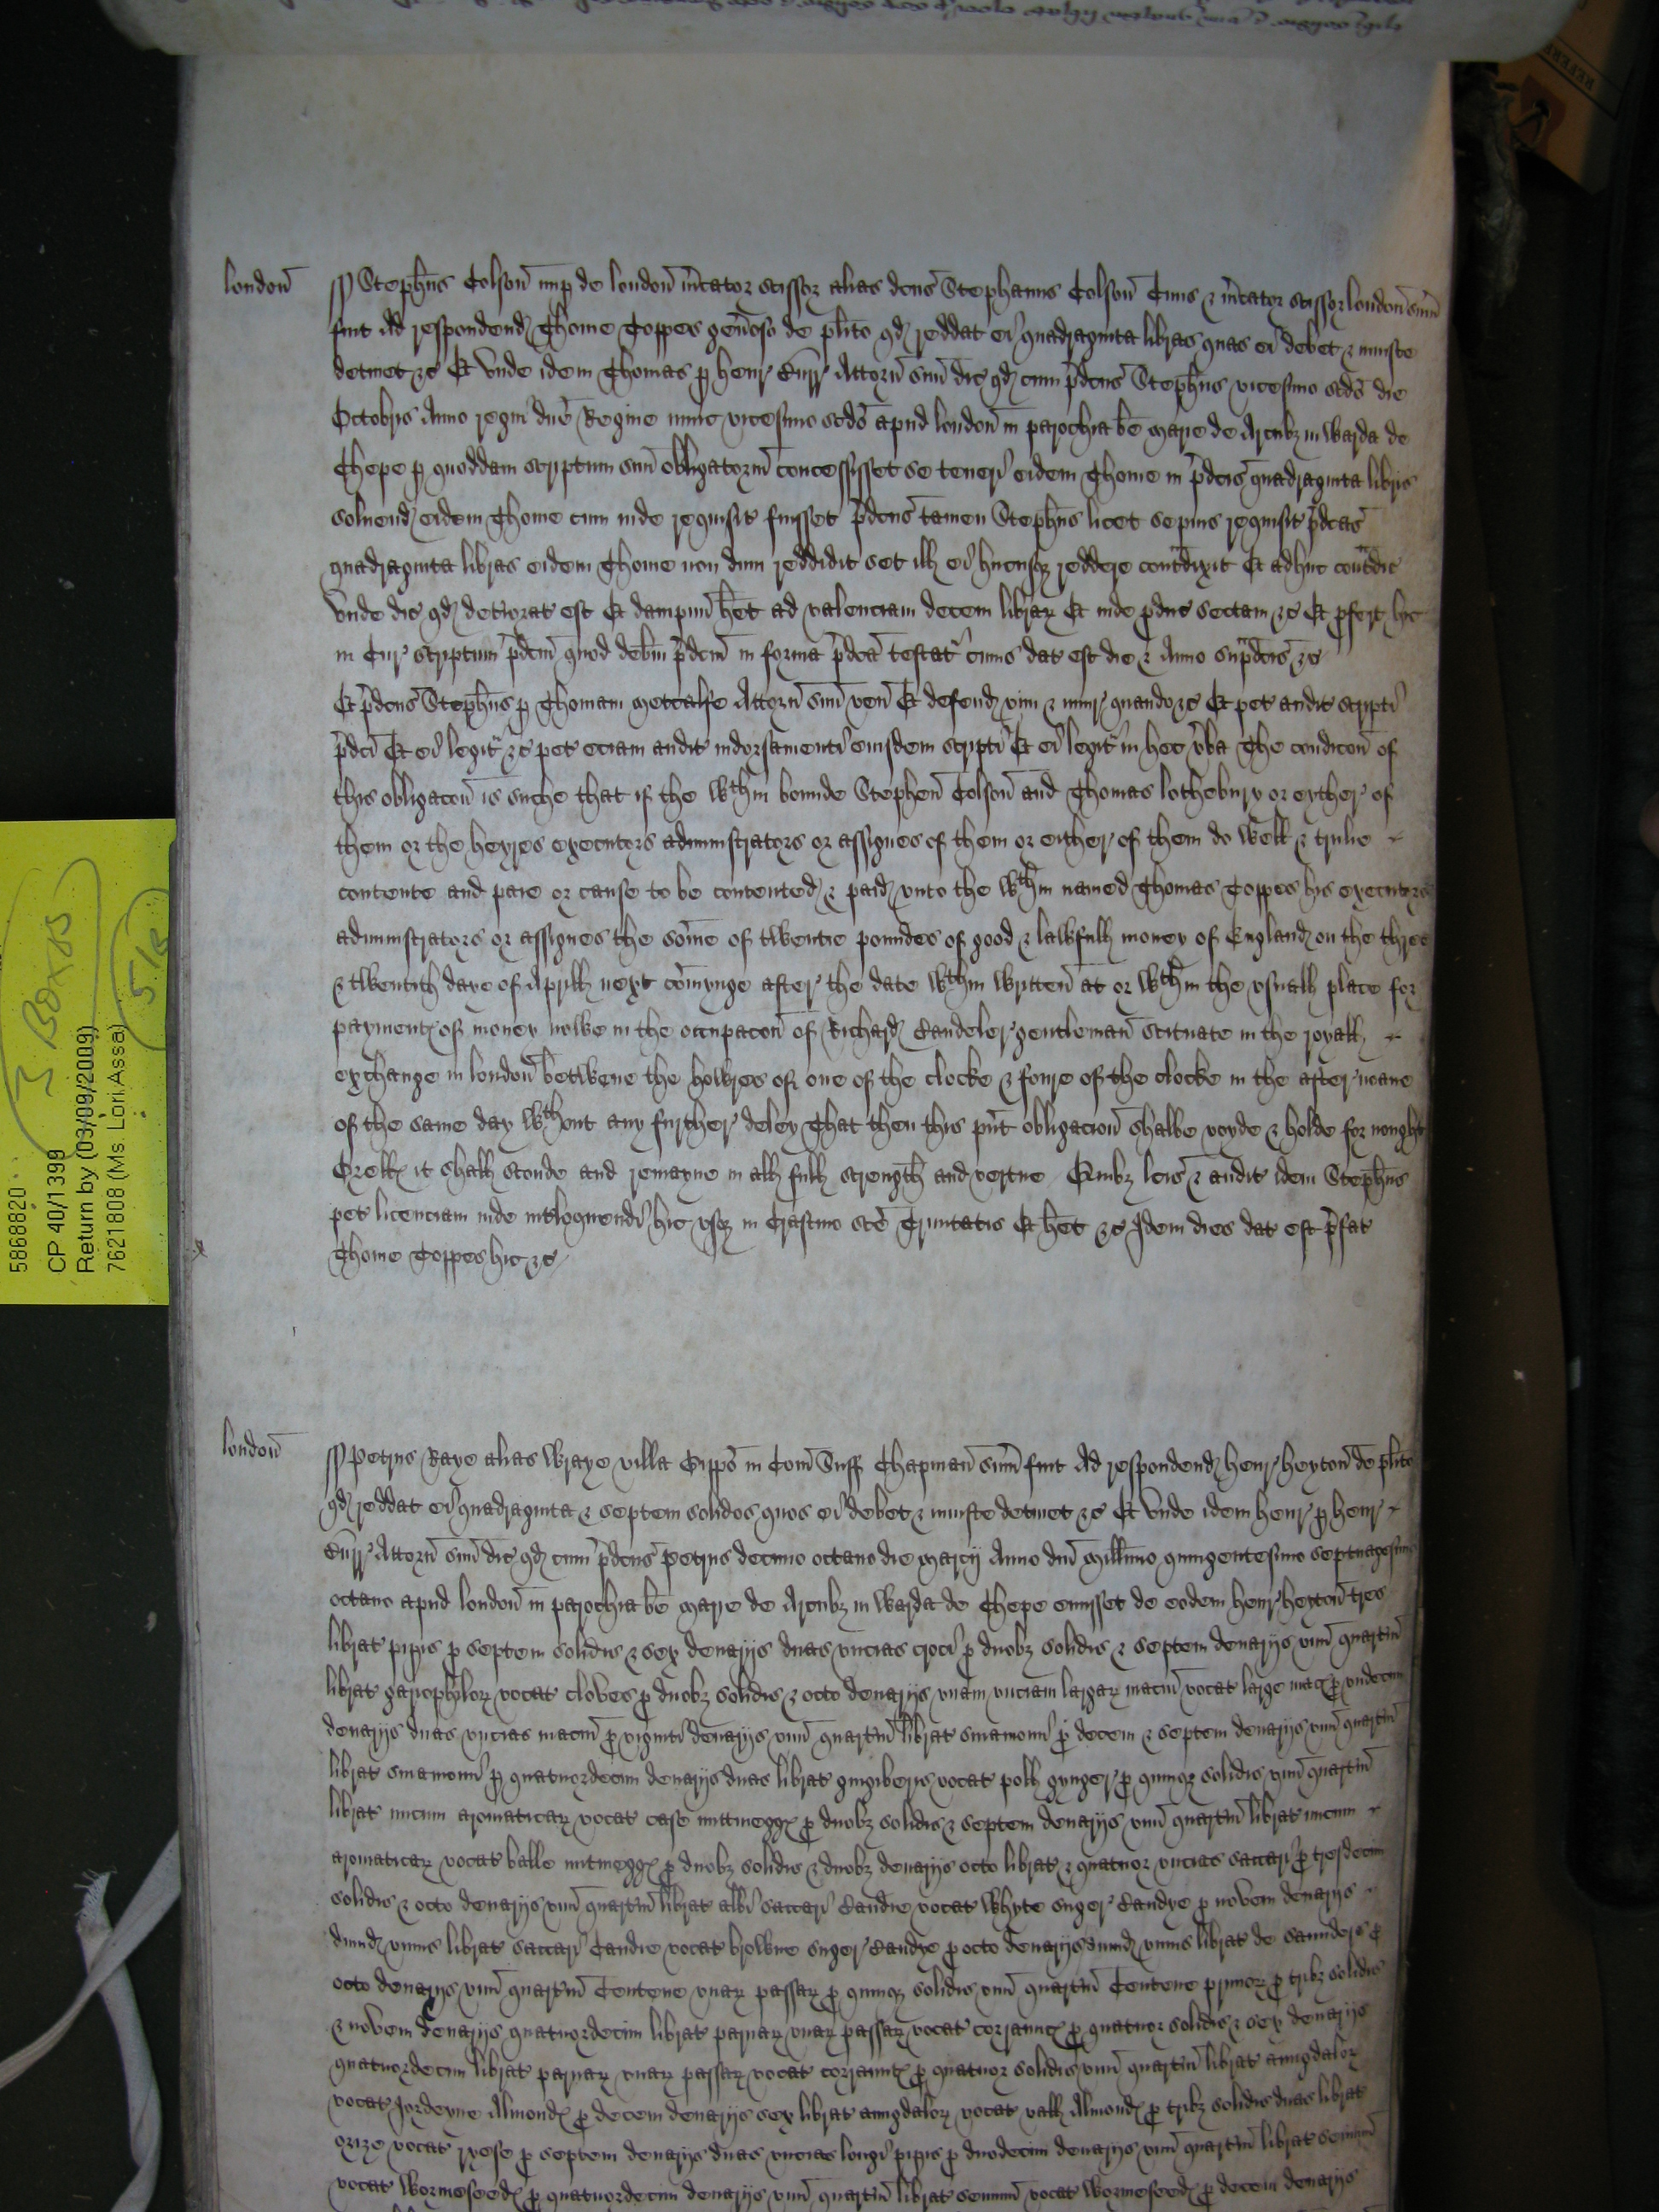 londoñ
Stephūs Colsoñ nup de londoñ m̄cator scissor alias dc̄us Stephanus Colsoñ Civis & m̄cator scissor londoñ sum̄
fuit Ad respondend Thome Toppes gen̄oso de pl̄ito qd reddat ei quadraginta libras quas ei debet & iniuste
detinet &c Et Unde idem Thomas p henr Attorñ suū dic qd cum p̄dc̄us Stephūs vicesimo sc̄do die
Octobris Anno regni dn̄e Regine nunc vicesimo sc̄do apud londoñ in parochia be Marie de Arcubz in warda de
Chepe p quoddam scriptum suū obligatoriū concessisset se teneri eidem Thome in p̄dc̄is quadraginta libris
solvend eidem Thome cum inde requisit fuisset p̄dc̄us tamen Stephūs licet sepius requisit p̄dc̄as
quadraginta libras eidem Thome non dum reddidit set ill ei hucusqz reddere cont̄dixit Et adhuc cont̄dic
Unde dic qd deteriorat est Et dampnū het ad valenciam decem librar Et inde pduc sectam &c Et p̄fert hic
in Cur scriptum p̄dc̄m quod debm̄ p̄dc̄m in forma p̄dc̄a testat cuius dat est die & Anno sup̄dc̄is &c
Et p̄dc̄us Stephūs p Thomam Metcalfe Attorñ suū veñ Et defend vim & iniur quando &c Et pet audit scripti
p̄dc̄i Et ei legit &c pet eciam audit indorsamenti eiusdem scripti Et ei legit in hec v̄ba The condicoñ of
this obligacoñ is suche that if the wthin bounde Stepheñ Colsoñ and Thomas lothebury or eyther of
them or the heyres executors administrators or assignes of them or either of them do well & trulie
contente and paie or cause to be contented & paid unto the wthin named Thomas Toppes his executors
administrators or assignes the som̄e of twentie poundes of good & lawfull money of England on the three
& twentith daye of Aprill next com̄ynge after the date wthin writteñ at or wthin the usuall place for
payment of money nowe in the occupacoñ of Richard Candeler gentlemañ scituate in the royall
exchange in londoñ betwene the howres of one of the clocke & foure of the clocke in the after noane
of the same day wthout any further deley That then this p̄nt obligacioñ shalbe voyde & holde for nought
Or ells it shall stonde and remayne in all full strength and vertue Quibz lc̄is & audit idem Stephūs
pet licenciam inde int̄loquendi hic usqz in Crastino sc̄e Trinitatis Et het &c Idem dies dat est p̄fat
Thome Toppes hic &c
londoñ
Petrus Raye alias Wraye villa Gippō in Com̄ Suff Chapmañ sum̄ fuit Ad respondend henr heytoñ de pl̄ito
qd reddat ei quadraginta & septem solidos quos ei debet & iniuste detinet &c Et Unde idem henr p henr
Attorñ suū dic qd cum p̄dc̄us Petrus decimo octavo die Marcij Anno dn̄i Millimo quingentesimo septuagesimo
octavo apud londoñ in parochia be Marie de Arcubz in warda de Chepe emisset de eodem henr heytoñ tres
librat pipis p septem solidis & sex denarijs duas uncias croci p duobz solidis & septem denarijs unū quartiū
librat gariophilor vocat cloves p duobz solidis & octo denarijs unam unciam largar maciū vocat large mac p undecim
denarijs duas uncias maciū p viginti denarijs unū quartiū librat sinamoni p decem & septem denarijs unū quartiū
librat sinamoni p quatuordecim denarijs duas librat gingiberis vocat poll gynger p quinqz solidis unū quartiū
librat nucum aromaticar vocat case nutmegg p duobz solidis & septem denarijs unū quartiū librat nucum
aromaticar vocat balle nutmegg p duobz solidis & duobz denarijs octo librat & quatuor uncias saccari p tresdecim
solidis & octo denarijs unū quartiū librat albi saccari Candie vocat Whyte suger Candye p novem denarijs
dimid unius librat saccari Candie vocat browne suger Candye p octo denarijs dimid unius librat de saunders p
octo denarijs unū quartiū Centene uvar passar p quinqz solidis unū quartiū Centene prunor p tribz solidis
& novem denarijs quatuordecim librat parvar uvar passar vocat corraunt p quatuor solidis & sex denarijs
quatuordecim librat parvar uvar passar vocat corraunt p quatuor solidis unū quartiū librat amigdalor
vocat Jordeyne Almond p decem denarijs sex librat amigdalor vocat vall Almond p tribz solidis duas librat
orize vocat ryese p septem denarijs duas uncias longi pipis p duodecim denarijs unū quartiū librat seminū
vocat wormeseed p quatuordecim denarijs unū quartiū librat seminū vocat wormeseed p decem denarijs
3 Boxes
515
5868820
CP 40/1399
Return by (03/09/2009)
7621808 (Ms. Lori Assa)